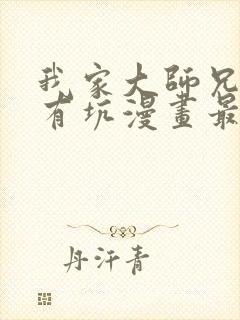 我家大師兄
有坑漫畫最
丹汗青